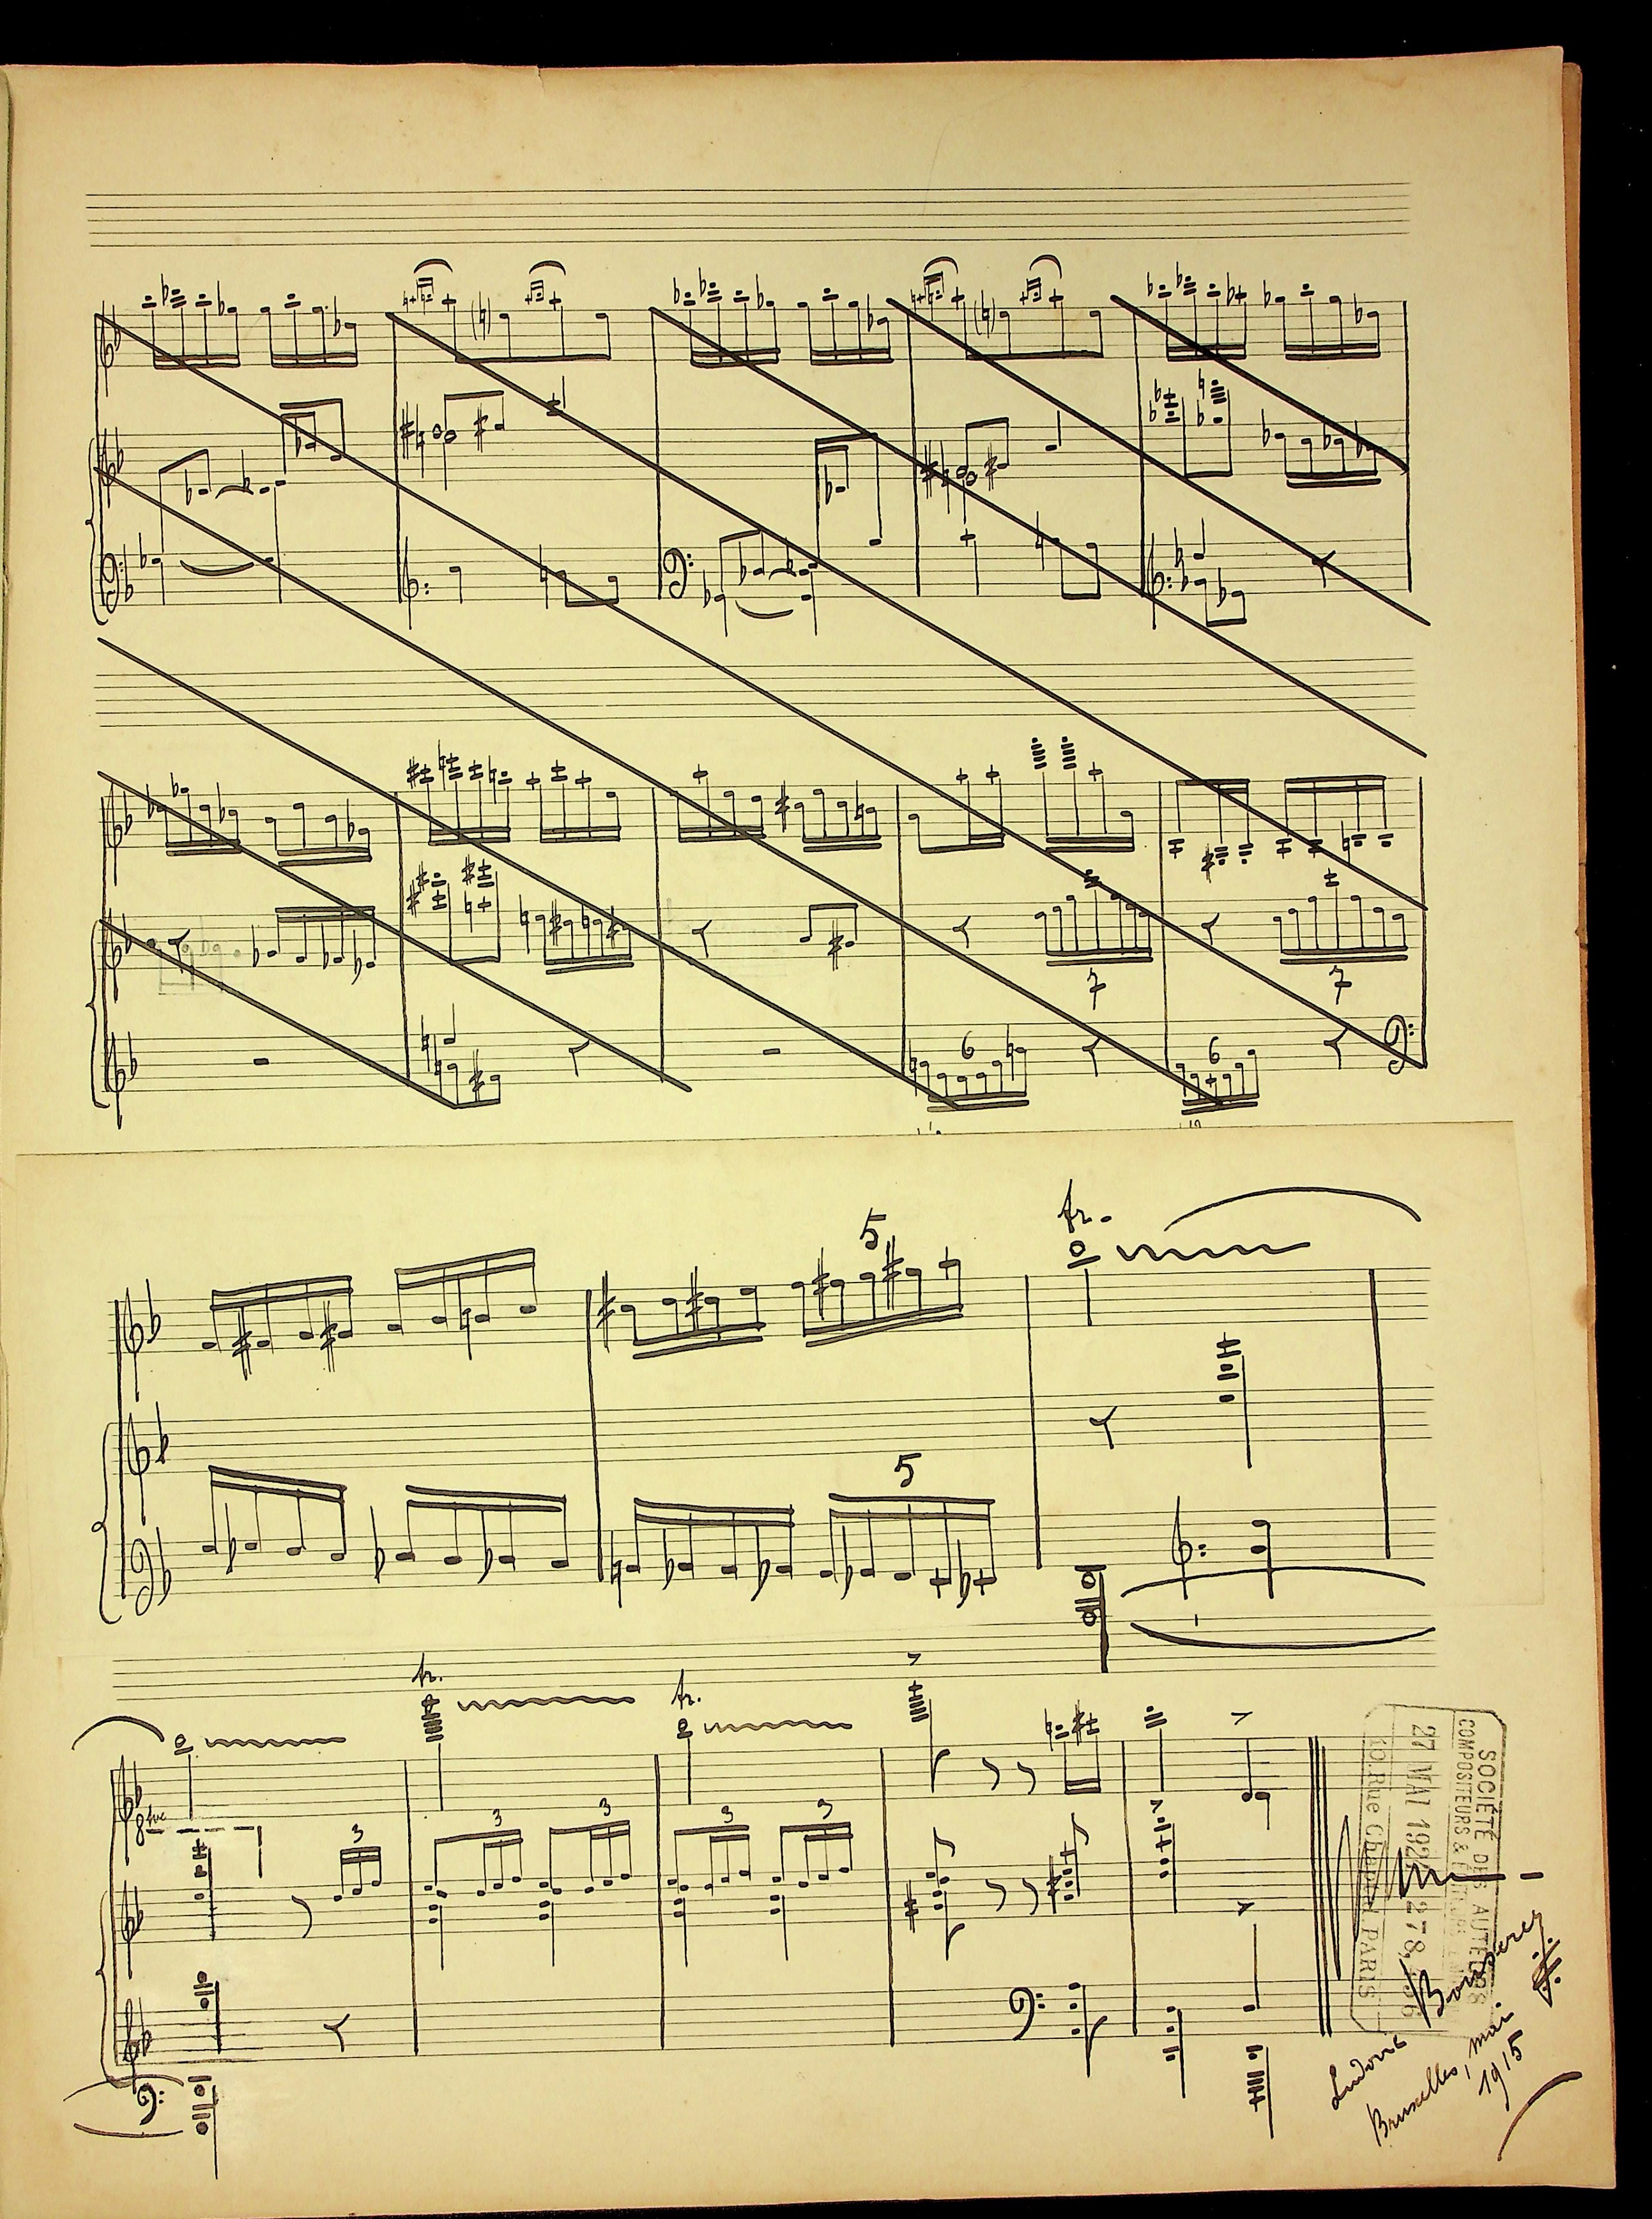 7
7
6
6
5
tr.
5
tr.
tr.
8
3
3
3
3
3
SOCIÉTÉ DES AUTEURS
COMPOSITEURS &
27 MAI 192
278
10. Rue Chaptal PARIS
Ludovic Bouserez
Bruxelles, mai
1915